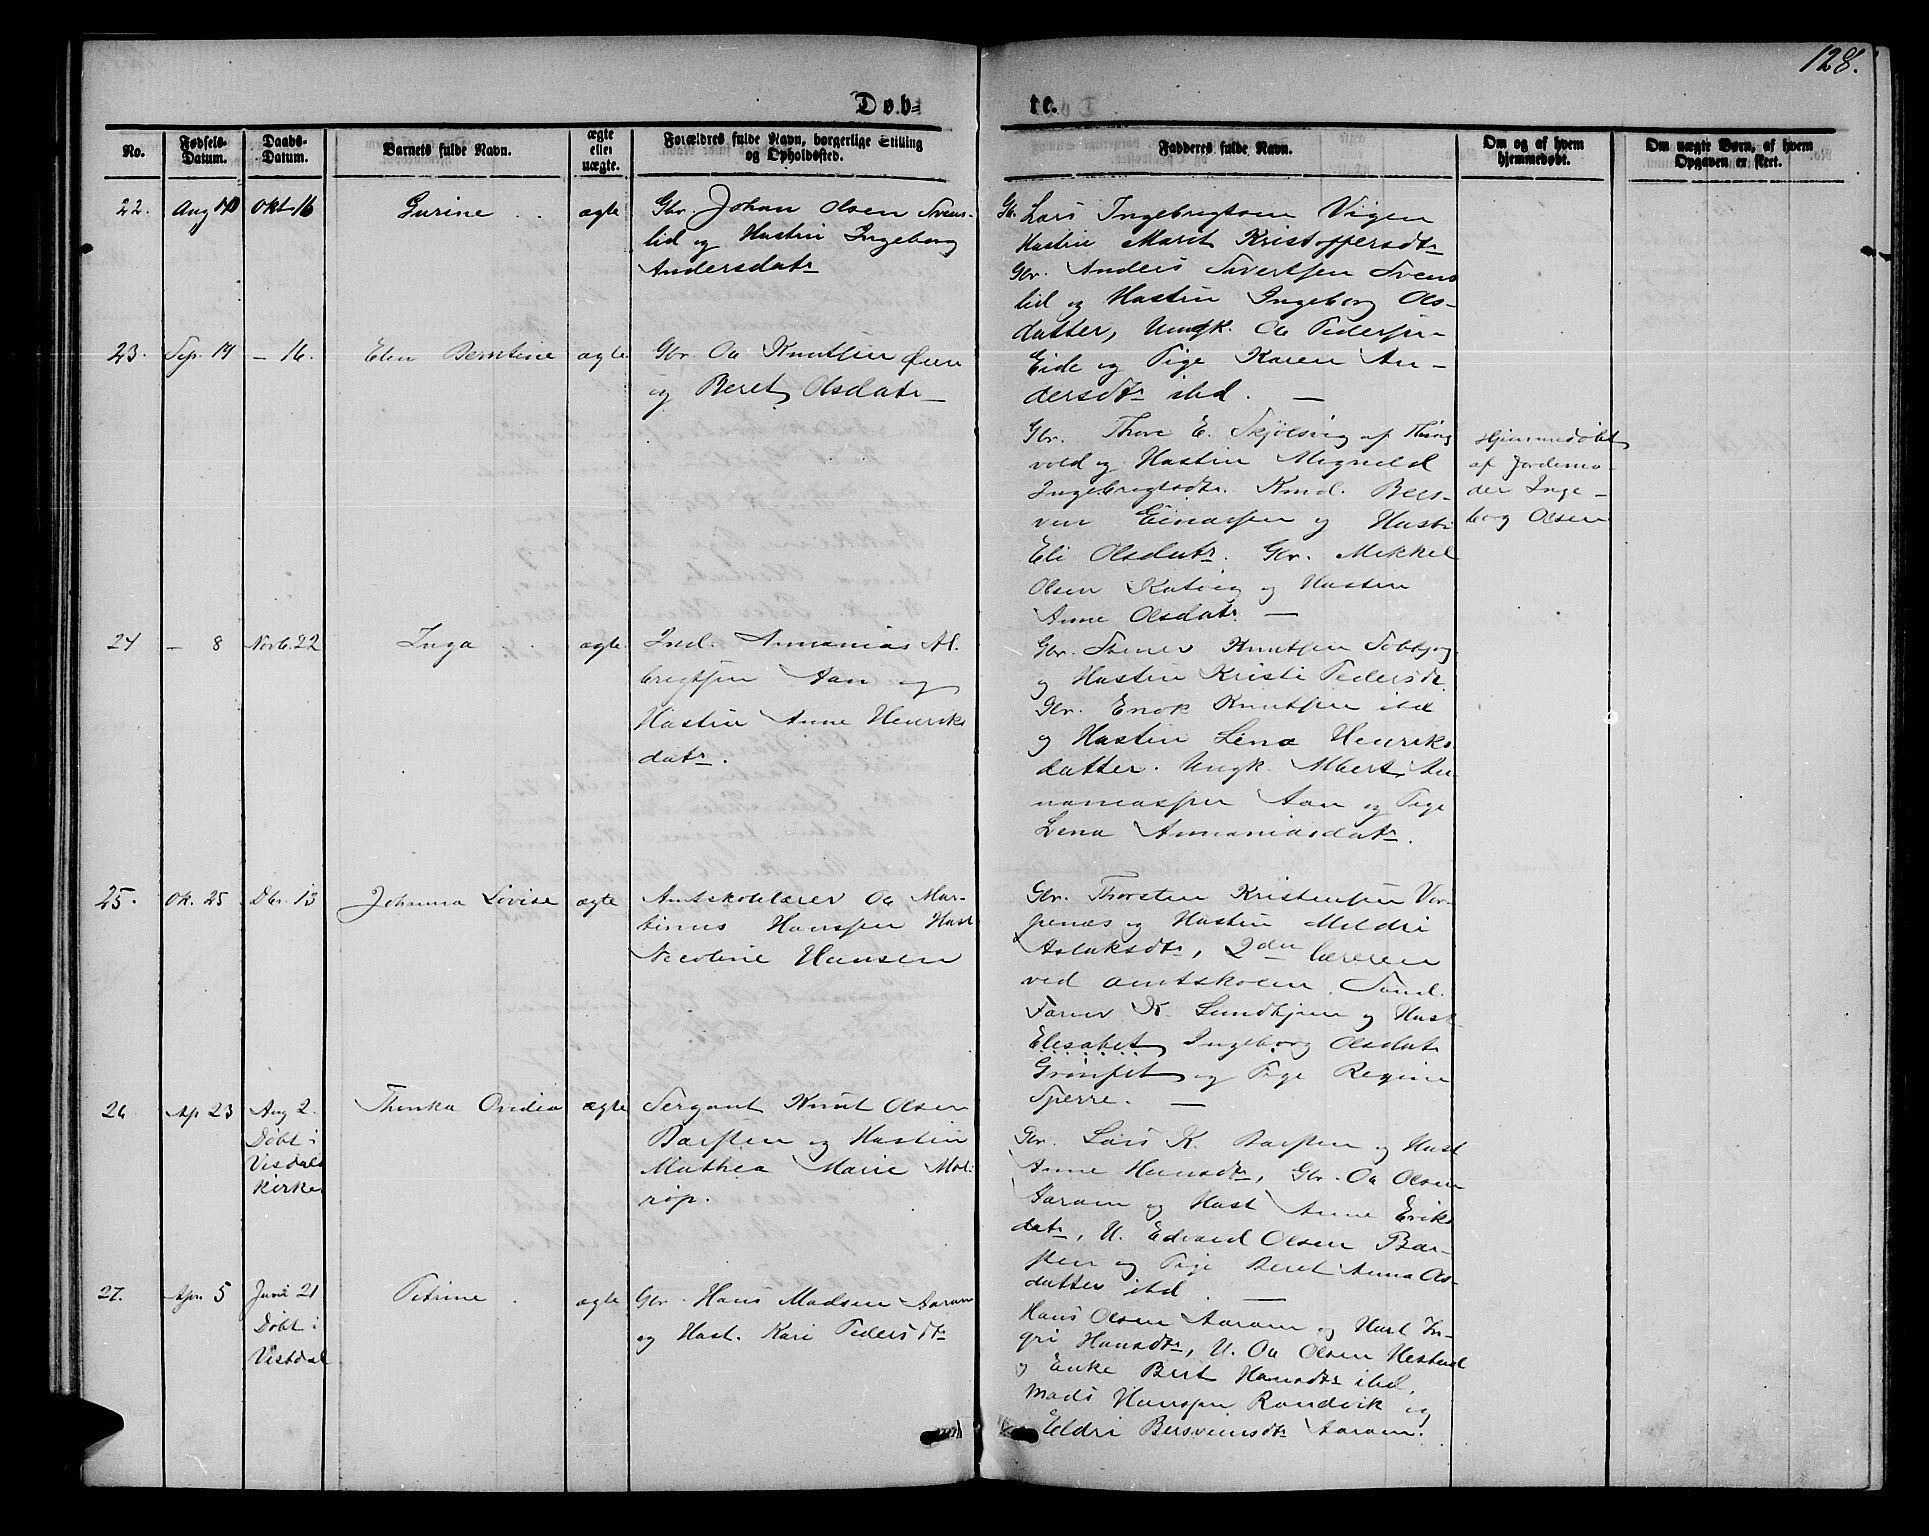 128.
Døb-
te.
No.
Fødsels-
Datum.
Daabs-
Datum.
Barnets fulde Navn.
ægte
eller
uægte.
Forældres fulde Navn, borgerlige Stilling
og Opholdssted.
Fadderes fulde Navn.
Om og af hvem
hjemmedøbt.
Om uægte Børn, af hvem
Opgaven er skeet.
22. Aug Okt 16 Gurine ægte
Gbr. Johan Olsen Svens-
lid og Hustru Ingeborg
Andersdatr
Gb. Lars Ingebregtsen Vigen
Hustru Marit Kristoffersdtr
Gbr. Anders Sivertsen Svens
lid og Hustru Ingeborg Ols-
datter, Ungk. Ole Pedersen
Eide og Pige Karen An-
dersdtr ibd.
23. Sep. 19 - 16. Elen Berntine ægte
Gbr Ole Knutsen Øren
og Beret Olsdatr
Gbr. Thore E. Skjølsvig af
vold og Hustru Magnild
Ingebregtsdtr. Kmd. Bers-
ven Einarsen og Hustr
Eli Olsdatr. Gbr. Mikkel
Olsen og Hustru
Anne Olsdatr.
Hjemmedøbt
af Jordemo-
der Inge-
borg Olsen
24 - 8 Novb. 22 Inga ægte
Ind. Annanias Al-
brigtsen Aan og
Hustru Anne Henriks
datr.
Gbr. Knutsen
og Hustru Kristi Pedersdtr
Gbr. Enok Knutsen ibd
og Hustru Lena Henriks
datter. Ungk. Albert An-
naniassen Aan og Pige
Lena Annaniasdatr.
25. Ok. 25 Dbr. 13 Johanna Lovise ægte
Amtskolelærer Ole Mar-
tinus Hanssen Hust
Nicoline Hansen
Gbr. Thorsten Kristensen Vor-
penæs og Hustru Meldri
Aslaksdtr, 2den læreren
ved amtskolen
K. og Hust
Elisabet Ingeborg Olsdatr
og Pige Regine
Sperre.
26 Ap 23 Aug 2. Thinka Ovidia ægte
Døbt i
Visdals
kirke
Sergant Knut Olsen
Barsten og Hustru
Mathea Marie
Gbr. Lars K. Barsten og Hust
Anne Hansdtr, Gbr. Ole Olsen
Aaram og Hust Anne Eriks
datr, U. Edvard Olsen Bar-
sten og Pige Beret Anna Ols-
datter ibd.
27. Apr. 5 Juni 21 Petrine ægte
Døbt i
Vistdal
Gbr. Hans Madsen Aaram
og Hust. Kari Pedersdtr
Hans Olsen Aaram og Hust In-
gri Hansdtr, U. Ole Olsen
og Enke Berit Hansdtr ibd,
Mads Hanssen Ronduik og
Eldri Bersveinsdtr Aaram.